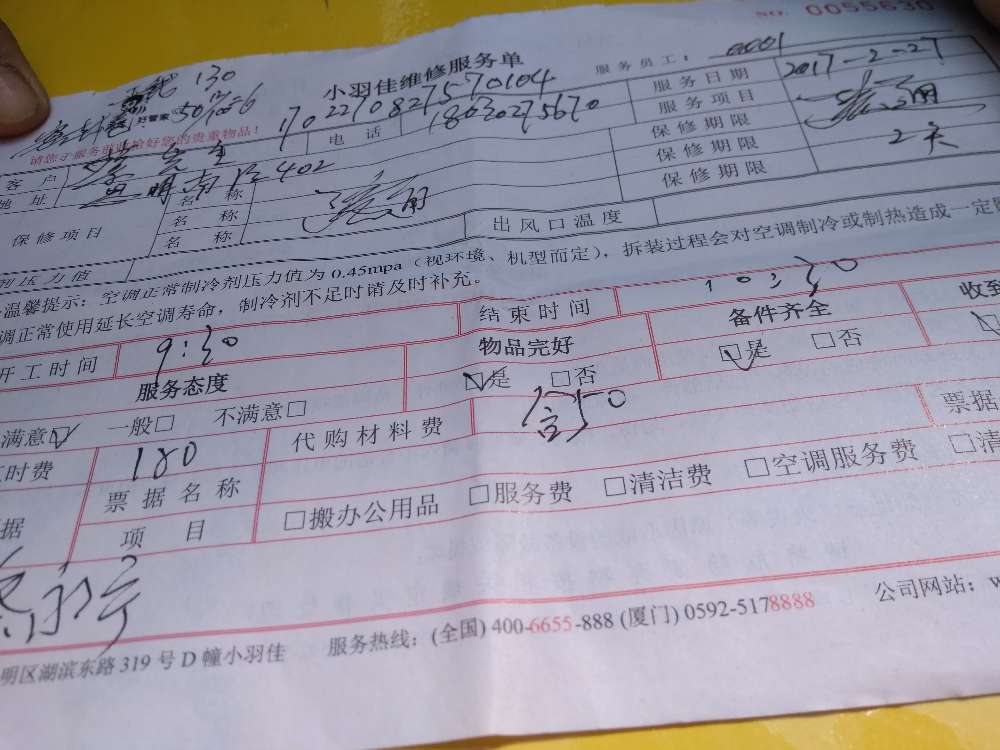 NO. 0055630
小羽佳维修服务单
服务员工：
130
好管家
请您于服务前收拾好您的贵重物品！
1702270827570104
服务日期 2017-2-27
客户 先生 电话 18030275670 服务项目 疏通
地址 402 保修期限
保修项目 名称 疏通 保修期限 2天
名称 保修期限
名称 出风口温度
压力值
温馨提示：空调正常制冷剂压力值为0.45mpa（视环境、机型而定），拆装过程会对空调制冷或制热造成一定
调正常使用延长空调寿命，制冷剂不足时请及时补充。
开工时间 9:30 结束时间 10:30
服务态度 物品完好 备件齐全 收到
满意☑ 一般□ 不满意□ ☑是 □否 ☑是 □否
时费 180 代购材料费 含50 票据
据 票据名称
项目 □搬办公用品 □服务费 □清洁费 □空调服务费 □清
明区湖滨东路319号D幢小羽佳 服务热线：(全国) 400-6655-888 (厦门) 0592-5178888 公司网站：w